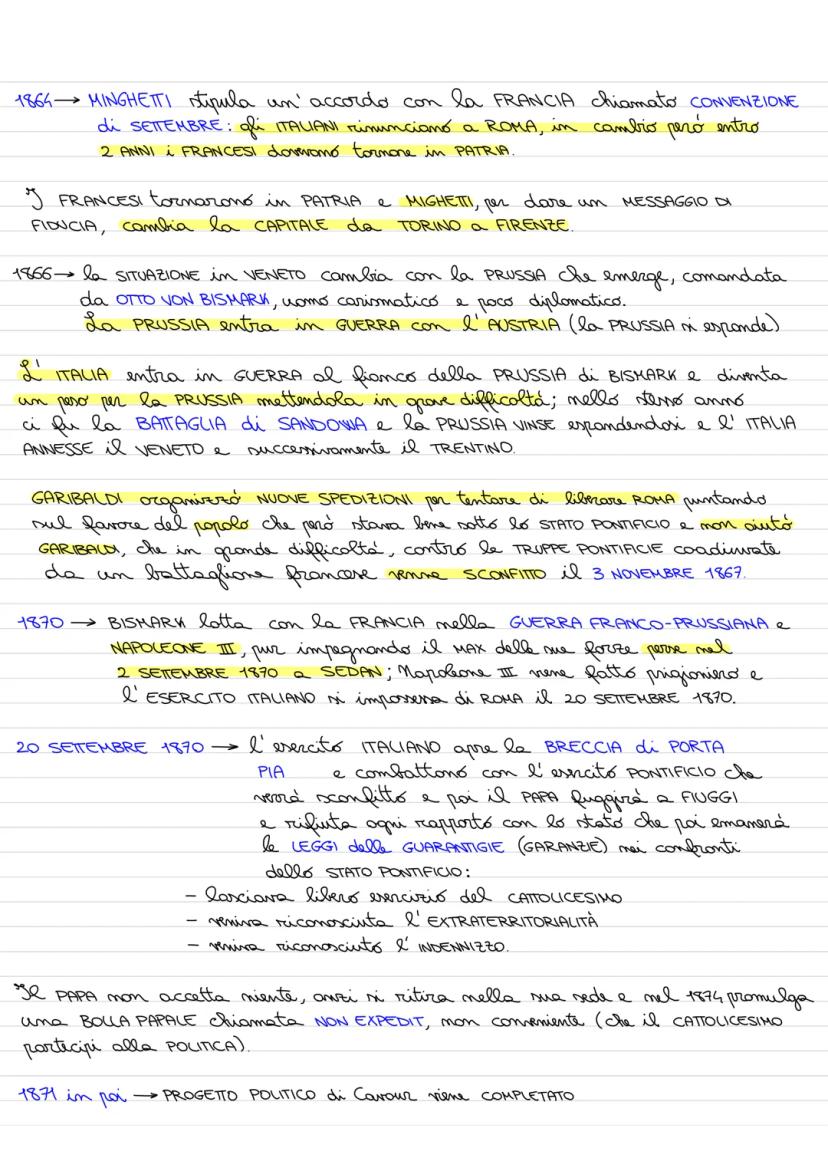 1864 → MINGHETTI stipula un' accordo con la FRANCIA chiamato CONVENZIONE
di SETTEMBRE: gli ITALIANI rinunciano a ROMA, in cambio però entro
2 ANNI i FRANCESI dovevano tornare in PATRIA.
I FRANCESI tornarono in PATRIA e MIGHETTI, per dare un MESSAGGIO DI
FIDUCIA, cambia la CAPITALE da TORINO a FIRENZE.
1866 → la SITUAZIONE in VENETO cambia con la PRUSSIA che emerge, comandata
da OTTO VON BISMARK, uomo carismatico e poco diplomatico.
La PRUSSIA entra in GUERRA con l' AUSTRIA (la PRUSSIA si espande)
L' ITALIA entra in GUERRA al fianco della PRUSSIA di BISMARK e diventa
un peso per la PRUSSIA mettendola in grave difficoltà; nello stesso anno
ci fu la BATTAGLIA di SANDOWA e la PRUSSIA VINSE espandendosi e l' ITALIA
ANNESSE il VENETO e successivamente il TRENTINO.
GARIBALDI organizzò NUOVE SPEDIZIONI per tentare di liberare ROMA puntando
sul favore del popolo che però stava bene sotto lo STATO PONTIFICIO e non aiutò
GARIBALDI, che in grande difficoltà, contro le TRUPPE PONTIFICIE coadiuvate
da un battaglione francese venne SCONFITTO il 3 NOVEMBRE 1867.
1870 → BISMARK lotta con la FRANCIA nella GUERRA FRANCO-PRUSSIANA e
NAPOLEONE III, pur impegnando il MAX delle sue forze perse nel
2 SETTEMBRE 1870 a SEDAN; Napoleone III viene fatto prigioniero e
l' ESERCITO ITALIANO si impossessa di ROMA il 20 SETTEMBRE 1870.
20 SETTEMBRE 1870 → l' esercito ITALIANO apre la BRECCIA di PORTA
PIA e combattono con l' esercito PONTIFICIO che
verrà sconfitto e poi il PAPA fuggirà a FIUGGI
e rifiuta ogni rapporto con lo stato che poi emanerà
le LEGGI delle GUARANTIGIE (GARANZIE) nei confronti
dello STATO PONTIFICIO:
- lasciava libero esercizio del CATTOLICESIMO
- veniva riconosciuta l' EXTRATERRITORIALITÀ
- veniva riconosciuto l' INDENNIZZO.
Il PAPA non accetta niente, anzi si ritira nella sua sede e nel 1874 promulga
una BOLLA PAPALE chiamata NON EXPEDIT, non conveniente (che il CATTOLICESIMO
partecipi alla POLITICA).
1871 in poi → PROGETTO POLITICO di Cavour viene COMPLETATO